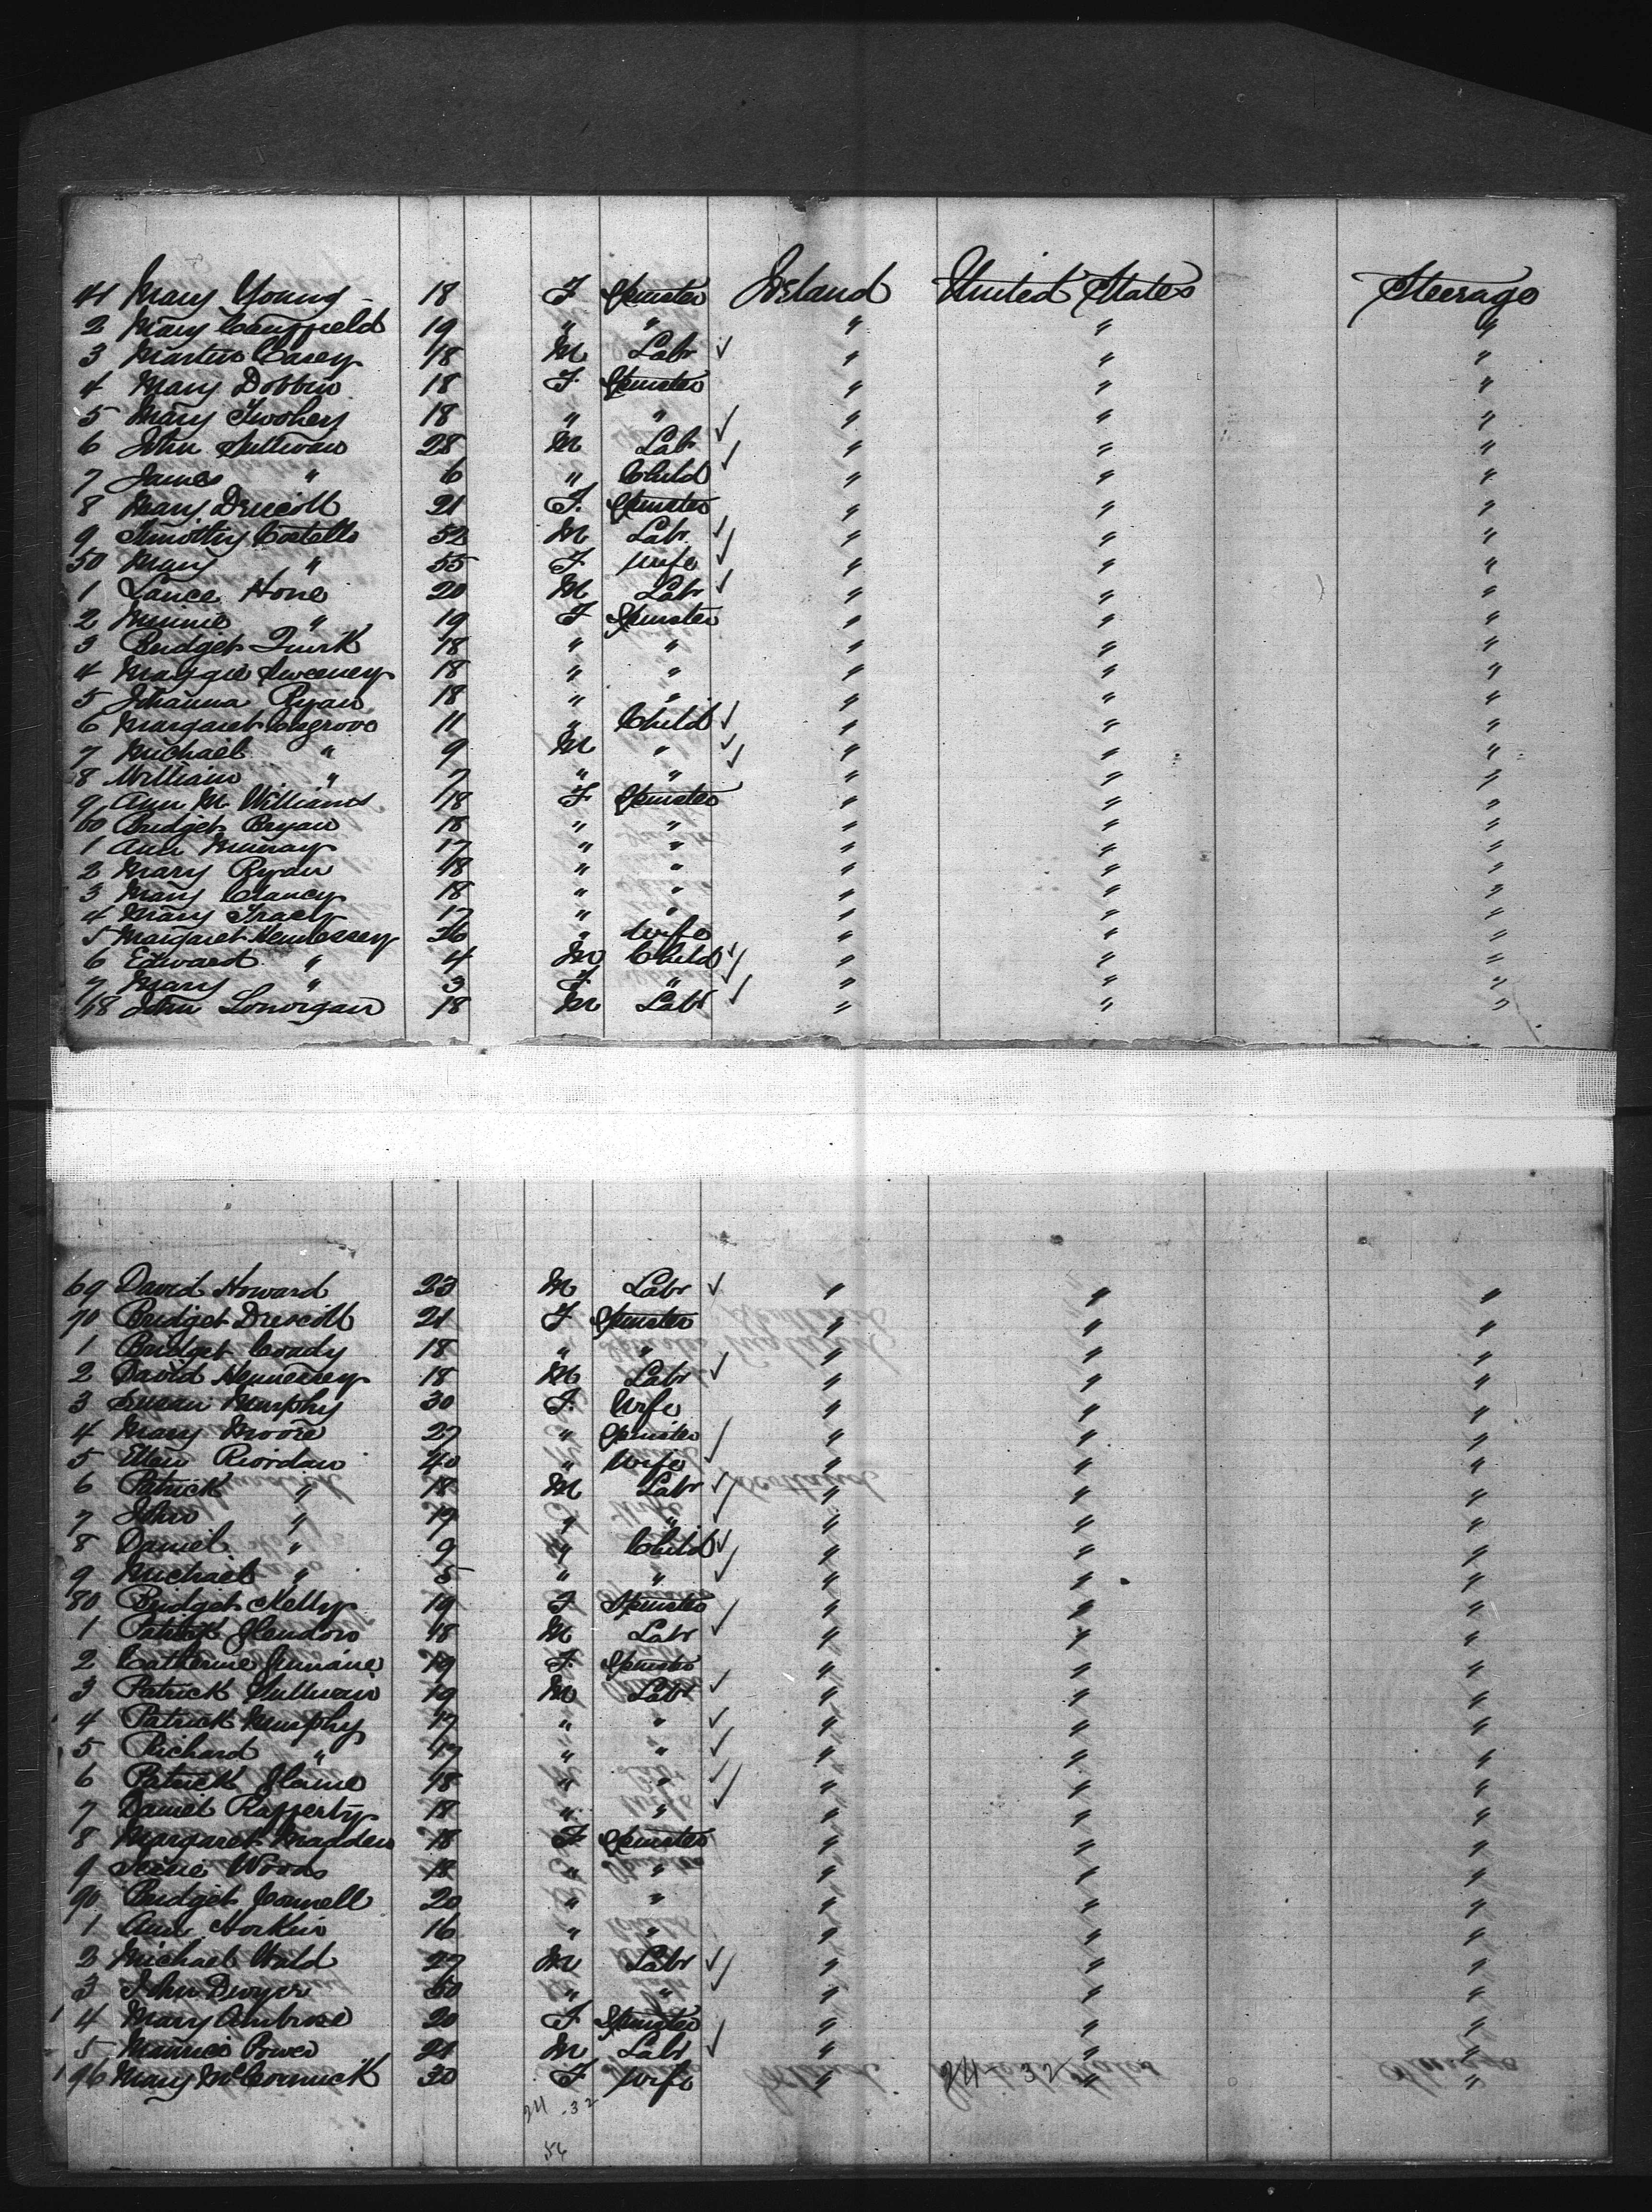 41 Mary Young 18 F Spinster Ireland United States Steerage
2 Mary 19 " " " " "
3 Martin Casey 18 M Labr ✓ " " "
4 Mary Dobbin 18 F Spinster " " "
5 Mary Twohey 18 " " ✓ " " "
6 John Sullivan 28 M Labr ✓ " " "
7 James " 6 " Child " " "
8 Mary Driscoll 21 F. Spinster " " "
9 Timothy Costello 52 M Labr ✓ " " "
50 Mary " 55 F Wife ✓ " " "
1 Lance Hone 20 M Labr ✓ " " "
2 Minnie " 19 F Spinster " " "
3 Bridget Quirk 18 " " " " "
4 Maggie Sweeney 18 " " " " "
5 Johanna Ryan 18 " " " " "
6 Margaret Cosgrove 11 " Child ✓ " " "
7 Michael " 9 M " ✓ " " "
8 William " 7 " " " " "
9 Ann M. Williams 18 F Spinster " " "
60 Bridget Bryan 18 " " " " "
1 Ann Murray 17 " " " " "
2 Mary Ryan 18 " " " " "
3 Mary Clancy 18 " " " " "
4 Mary Tracey 17 " " " " "
5 Margaret Hennessey 26 " Wife " " "
6 Edward " 4 M Child ✓ " " "
7 Mary " 3 F. " ✓ " " "
68 John Lonorgan 18 M Labr " " "
69 David Howard 23 M Labr ✓ " " "
70 Bridget Driscoll 21 F Spinster " " "
1 Bridget Coady 18 " " " " "
2 David Hennessey 18 M Labr ✓ " " "
3 Susan Murphy 30 F. Wife " " "
4 Mary Moore 27 " Spinster " " "
5 Ellen Riordan 40 " Wife ✓ " " "
6 Patrick " 18 M Labr ✓ " " "
7 John " 17 " " ✓ " " "
8 Daniel " 9 " Child ✓ " " "
9 Michael " 5 " " ✓ " " "
80 Bridget Kelly 19 F Spinster " " "
1 Patrick Glendon 18 M Labr ✓ " " "
2 Catherine 19 F. Spinster " " "
3 Patrick Sullivan 19 M Labr ✓ " " "
4 Patrick Murphy 17 " " ✓ " " "
5 Richard " 17 " " ✓ " " "
6 Patrick 18 " " ✓ " " "
7 Daniel Rafferty 18 " " ✓ " " "
8 Margaret Madden 18 F Spinster " " "
9 Woods 18 " " " " "
90 Bridget Connell 20 " " " " "
1 Ann Horkin 16 " " " " "
2 Michael Wald 27 M Labr ✓ " " "
3 John Dwyer 50 " " ✓ " " "
4 Mary Ambrose 20 F Spinster " " "
5 Maurice Power 21 M Labr ✓ " " "
196 Mary McCormick 30 F Wife " " "
24 32
24 . 32
56